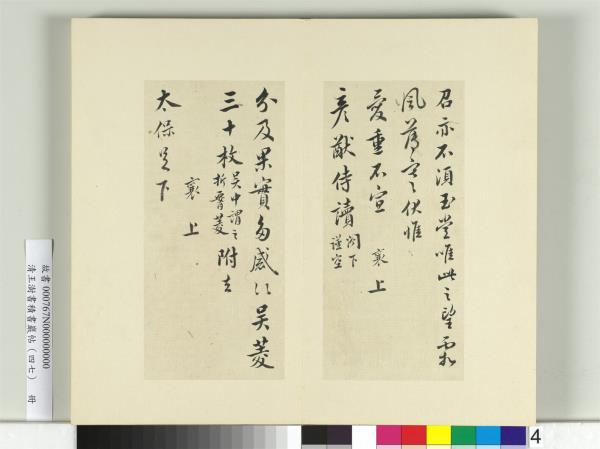 召亦不須玉堂唯此之望霜
風薄寒伏惟
愛重不宣 襄上
彥猷侍讀閣下
謹空
分及果實多感吳菱
三十枚吳中謂之
折腰菱附去
襄上
太保足下
故書000767N000000000
清王澍書積書巖帖(四七) 冊
4